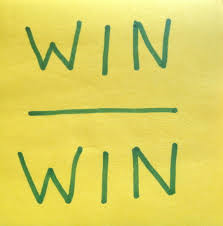 WIN
WIN